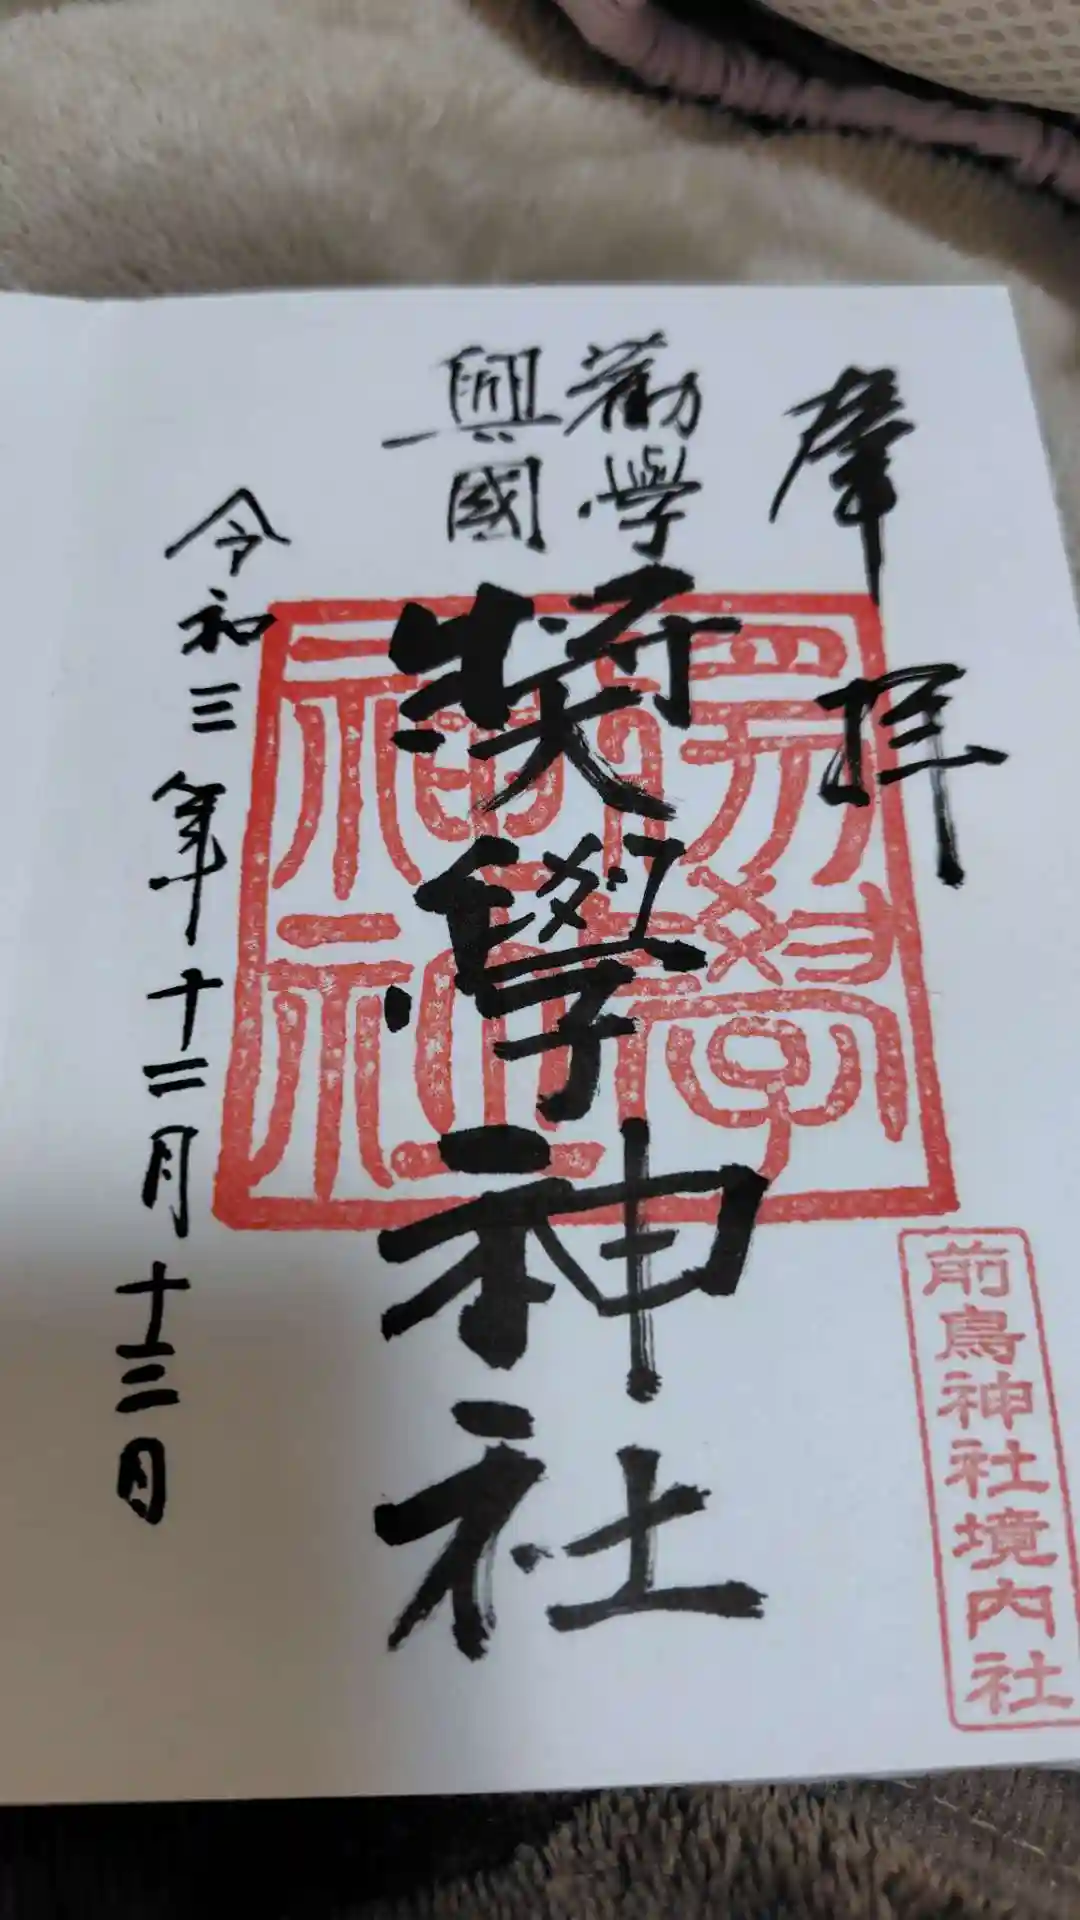 奉拝
勸學
興國
奨學神社
令和三年十二月十三日
前鳥神社境内社